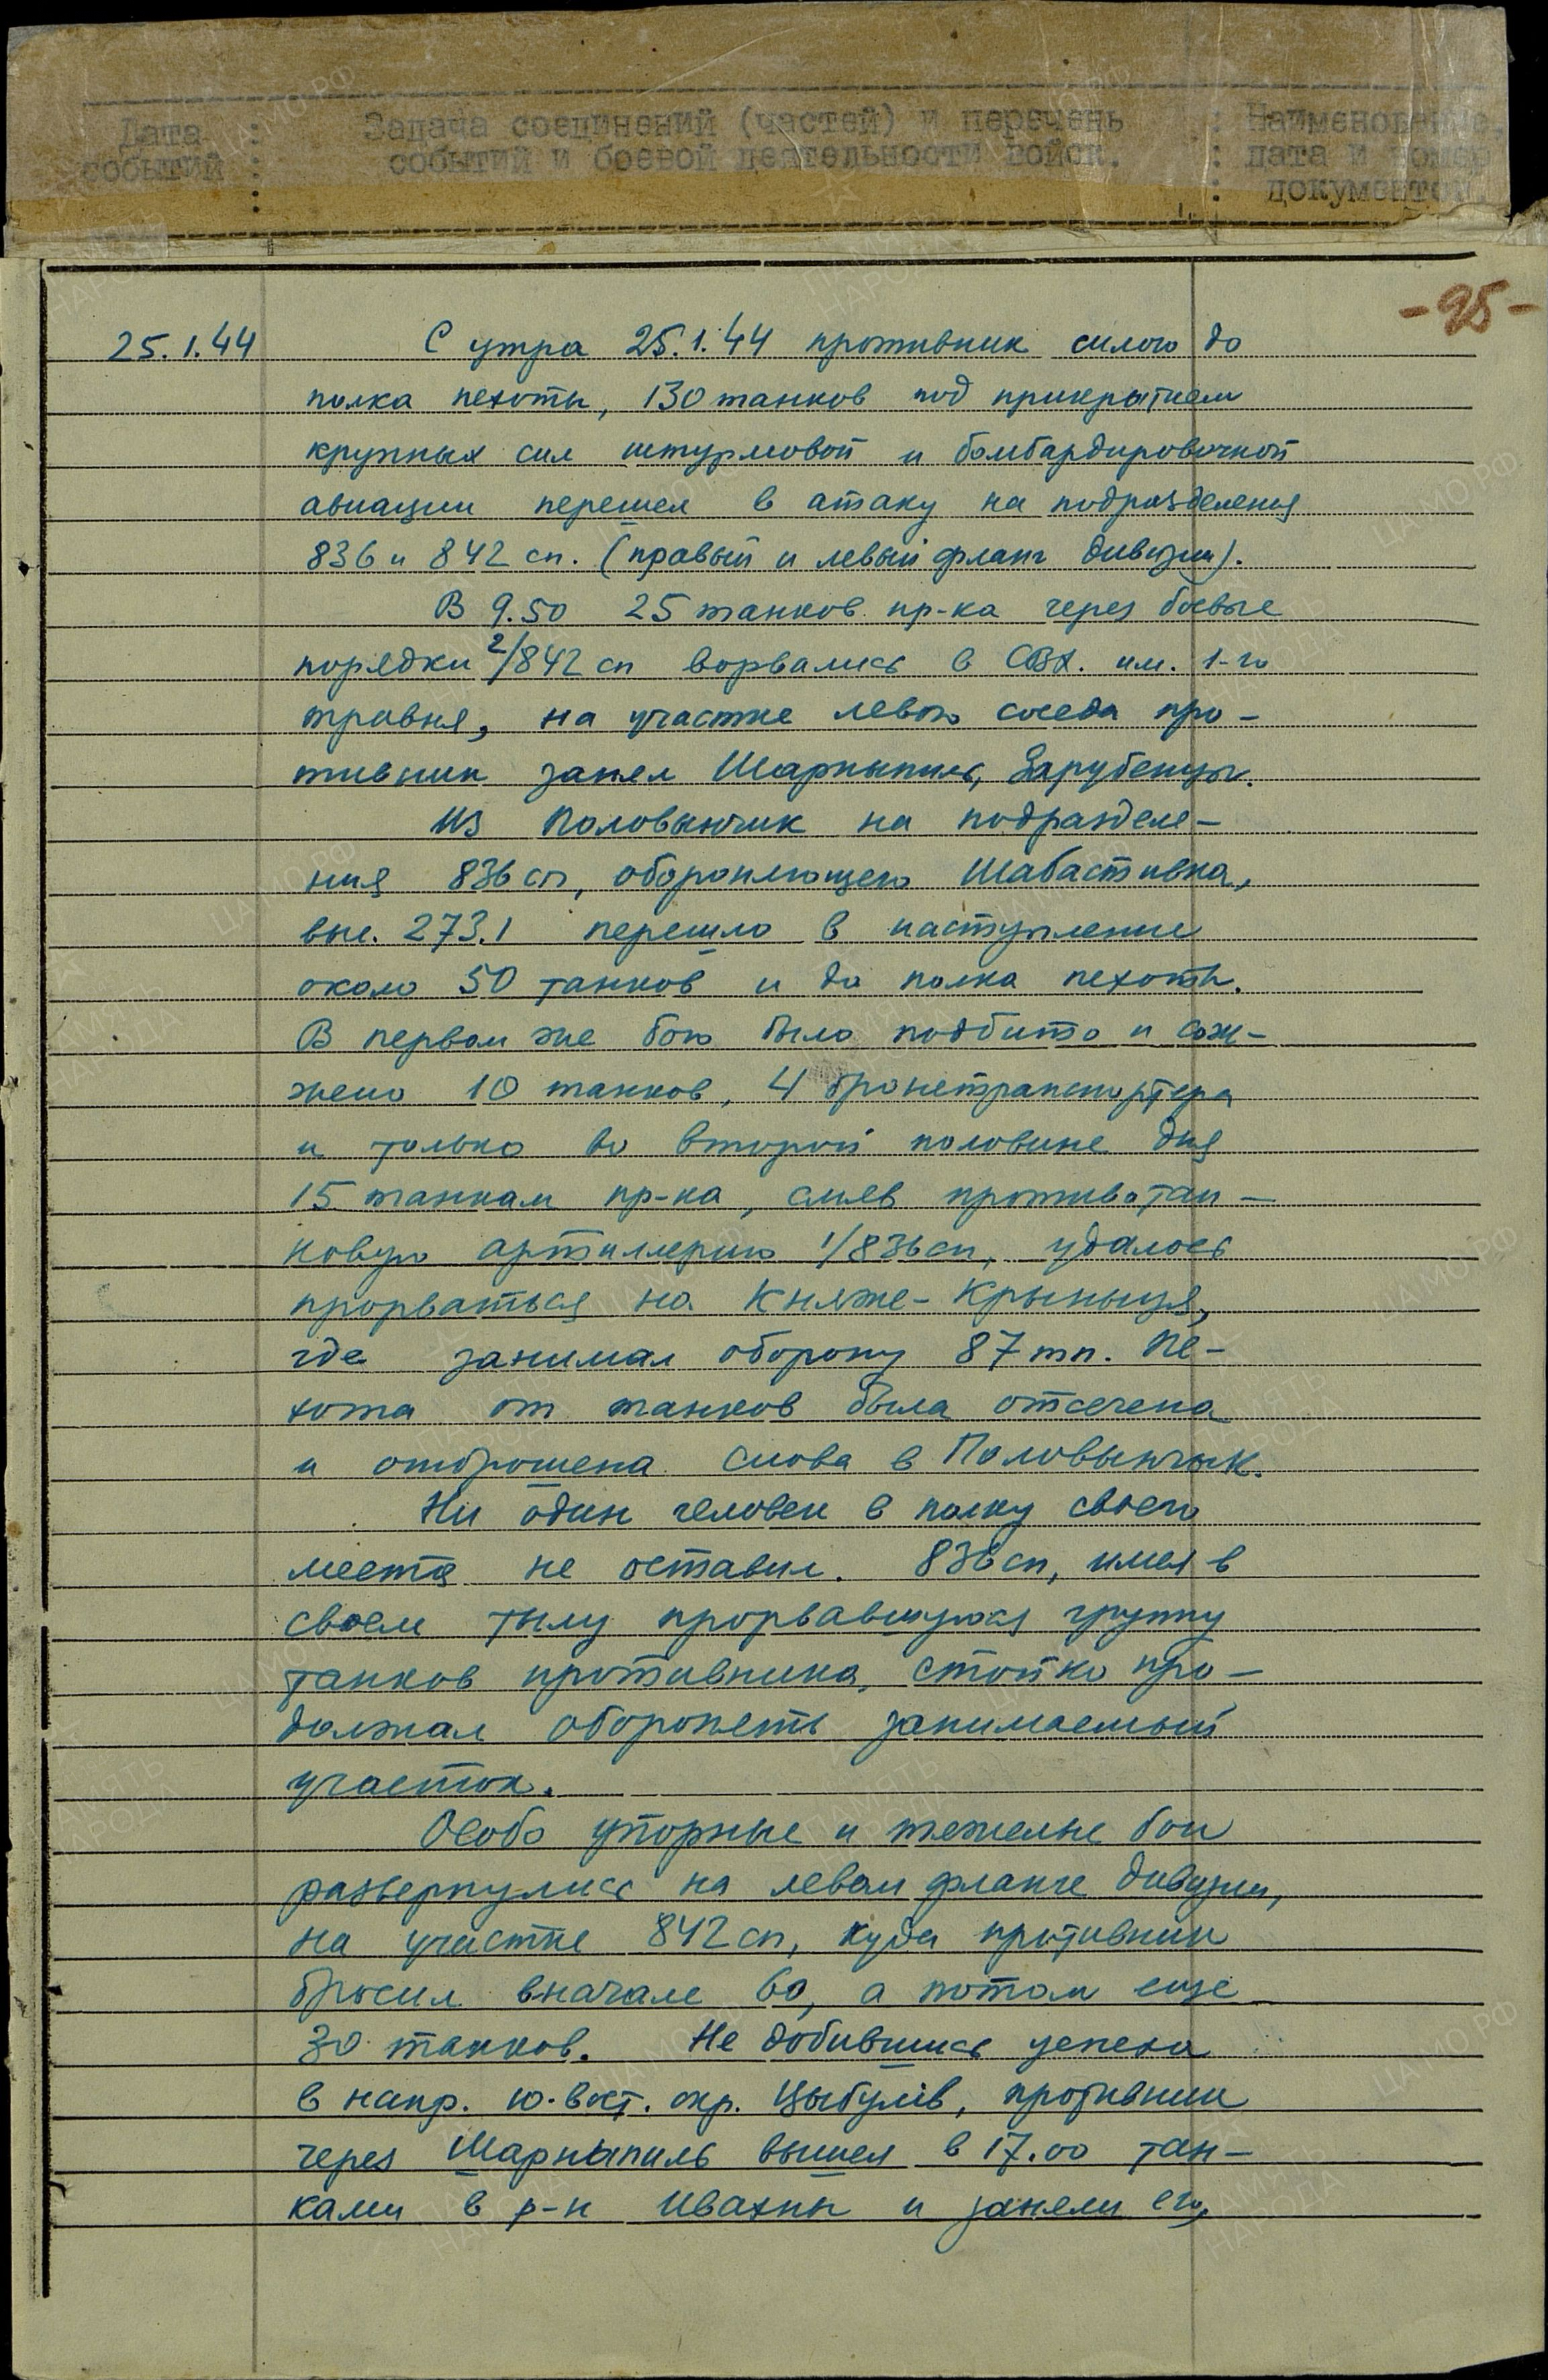 Дата : Задача соединений (частей) и перечень : Наименование,
событий : событий и боевой деятельности войск. : дата и номер
: : документов
-95-
25.1.44 С утра 25.1.44 противник силою до
полка пехоты, 130 танков под прикрытием
крупных сил штурмовой и бомбардировочной
авиации перешел в атаку на подразделения
836 и 842 сп. (правый и левый фланг дивизии).
В 9.50 25 танков пр-ка через боевые
порядки 2/842 сп ворвались в СВХ. им. 1-го
травня, на участке левого соседа про-
тивник занял Шарныпиль, Зарубенцы.
Из Половынчик на подразделе-
ния 836 сп, обороняющего Шабастивка,
выс. 273.1 перешло в наступление
около 50 танков и до полка пехоты.
В первом же бою было подбито и сож-
жено 10 танков, 4 бронетранспортера
и только во второй половине дня
15 танкам пр-ка, смяв противотан-
ковую артиллерию 1/836 сп, удалось
прорваться на Княже-Крыныця,
где занимал оборону 87 тп. Пе-
хота от танков была отсечена
и отброшена снова в Половынчык.
Ни один человек в полку своего
места не оставил. 836 сп, имея в
своем тылу прорвавшуюся группу
танков противника, стойко про-
должал оборонять занимаемый
участок.
Особо упорные и тяжелые бои
развернулись на левом фланге дивизии,
на участке 842 сп, куда противник
бросил вначале 60, а потом еще
30 танков. Не добившись успеха
в напр. ю.-вост. окр. Цыбулiв, противник
через Шарныпиль вышел в 17.00 тан-
ками в р-н Ивахны и заняли его,